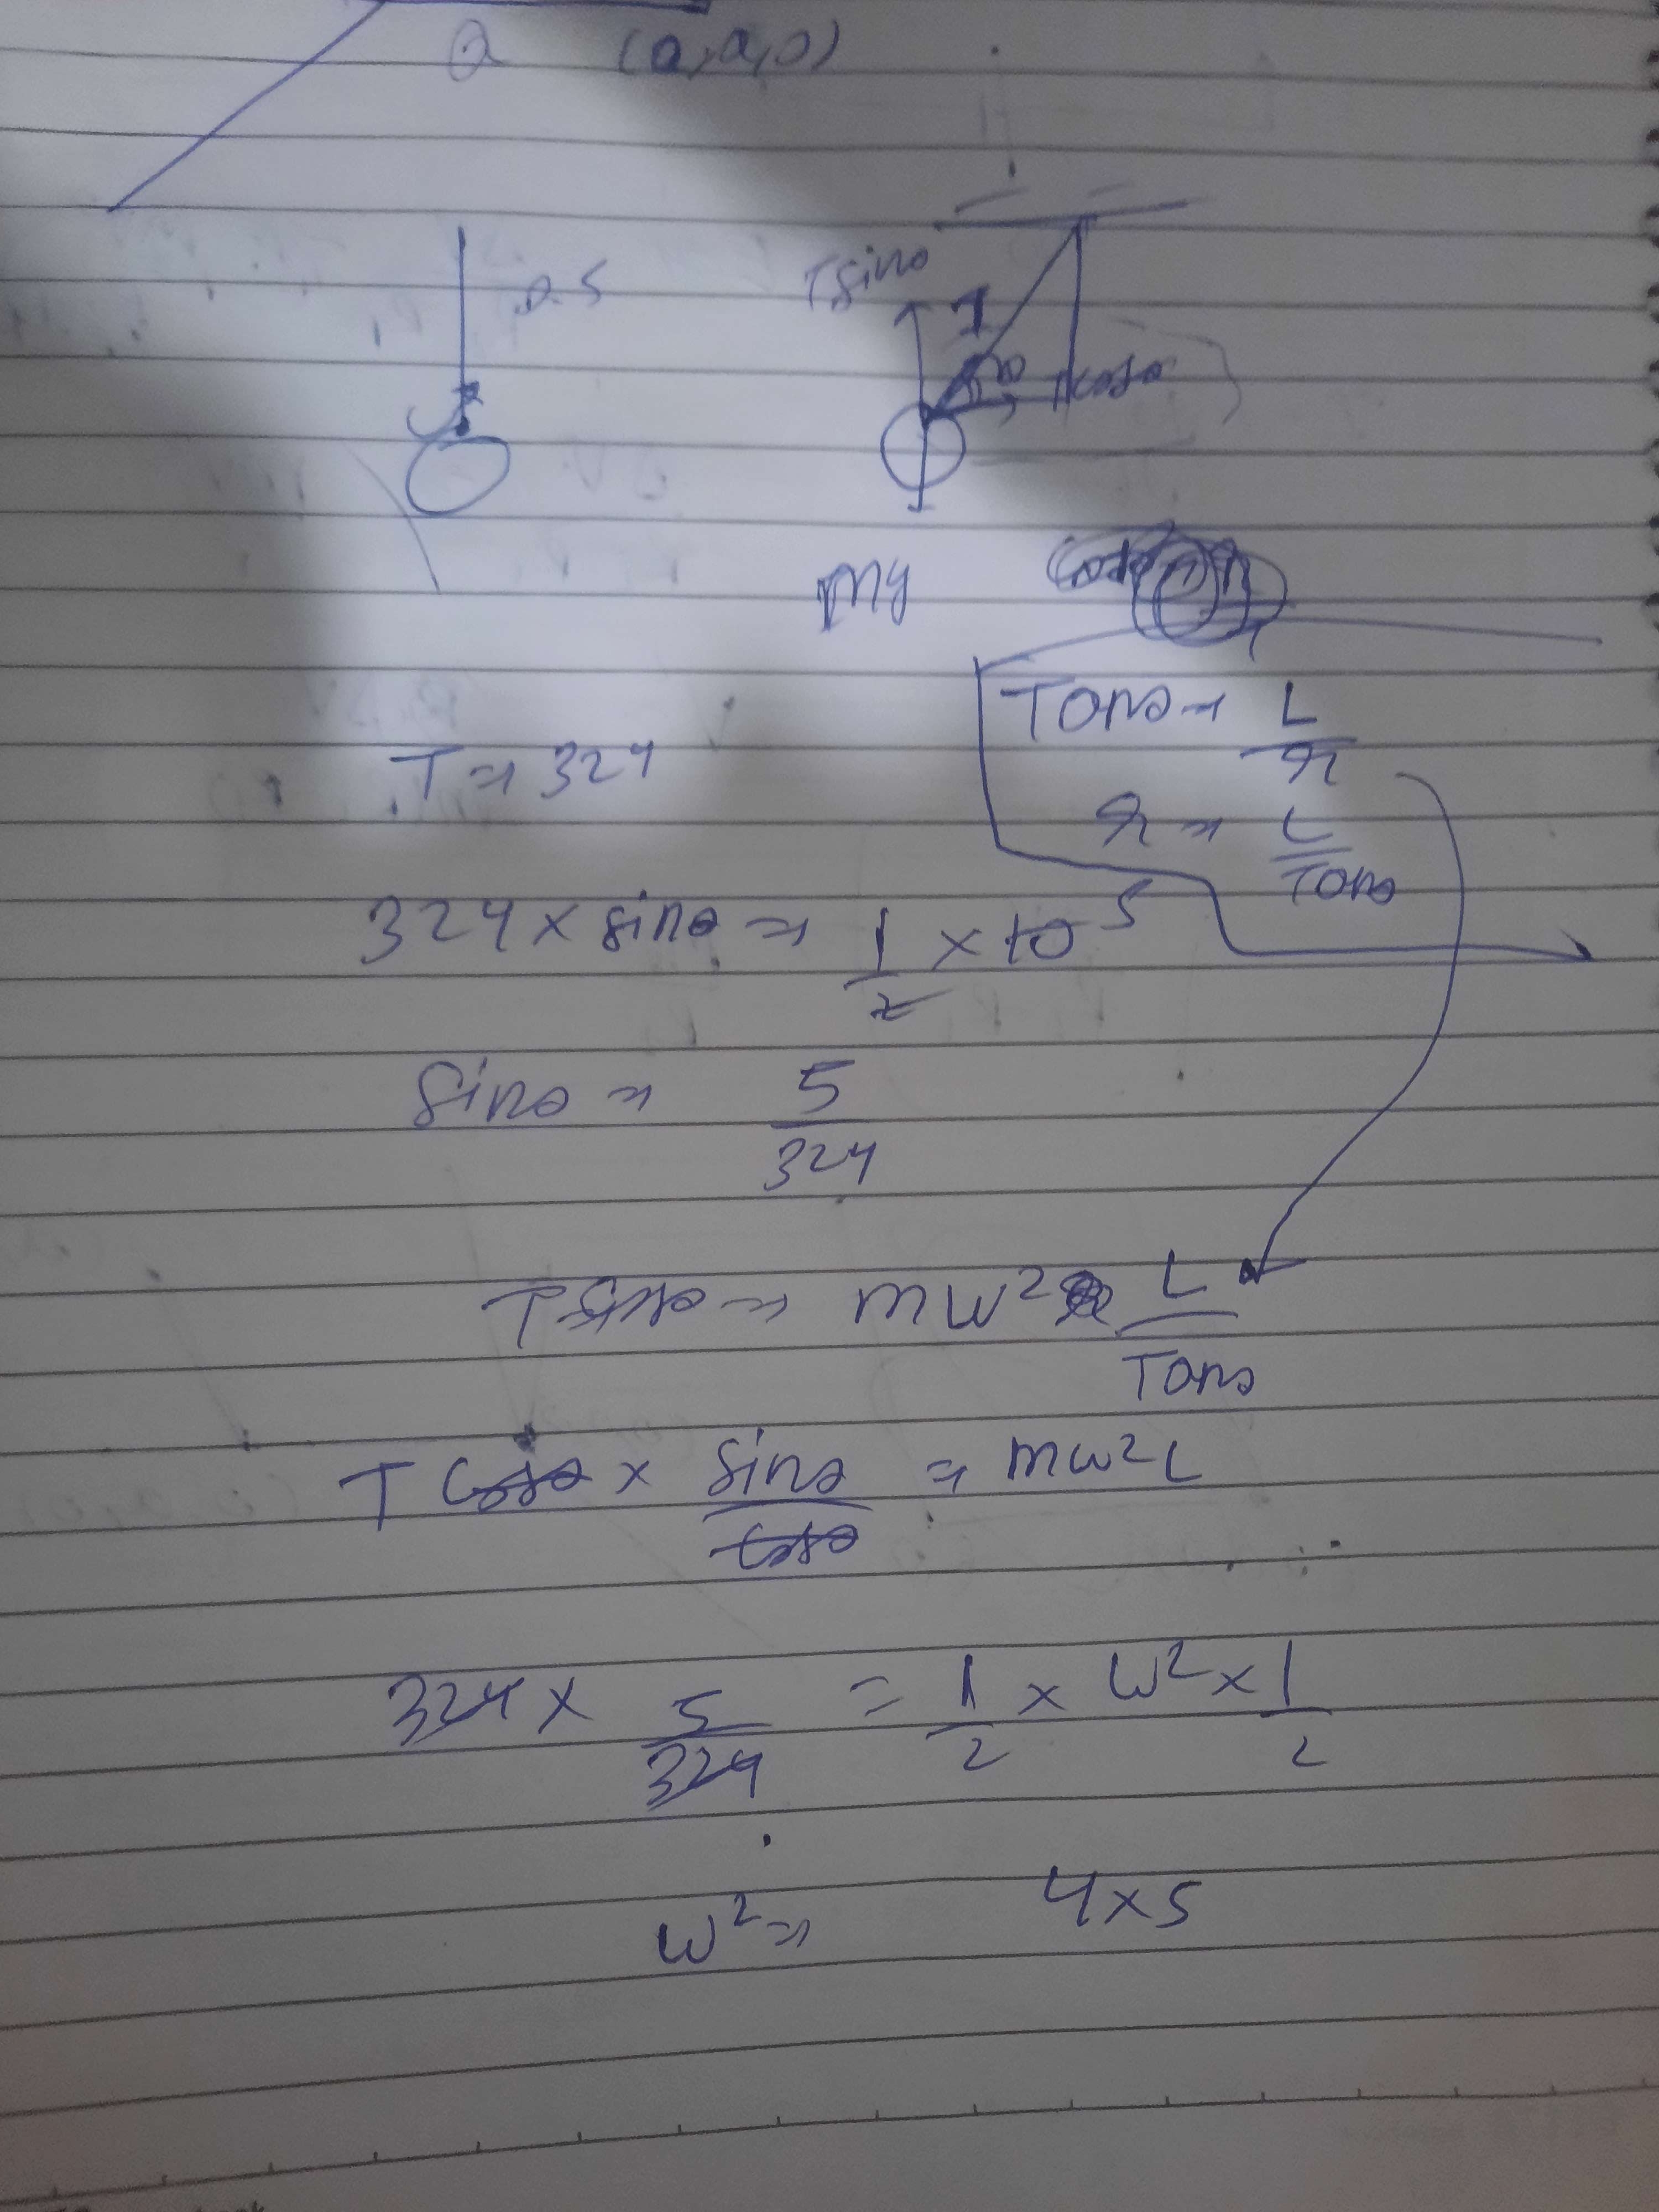 Q (a,a,0)
0.5
Tsinθ
T
θ
Tcosθ
mg
Tanθ → L/r
T ⇒ 324
r ⇒ L/Tanθ
324 × sinθ ⇒ 1/2 × 10 5
sinθ ⇒ 5/324
Tcosθ ⇒ mw² L/Tanθ
T cosθ × sinθ/cosθ ⇒ mw²L
324 × 5/324 = 1/2 × w² × 1/2
w² ⇒ 4×5